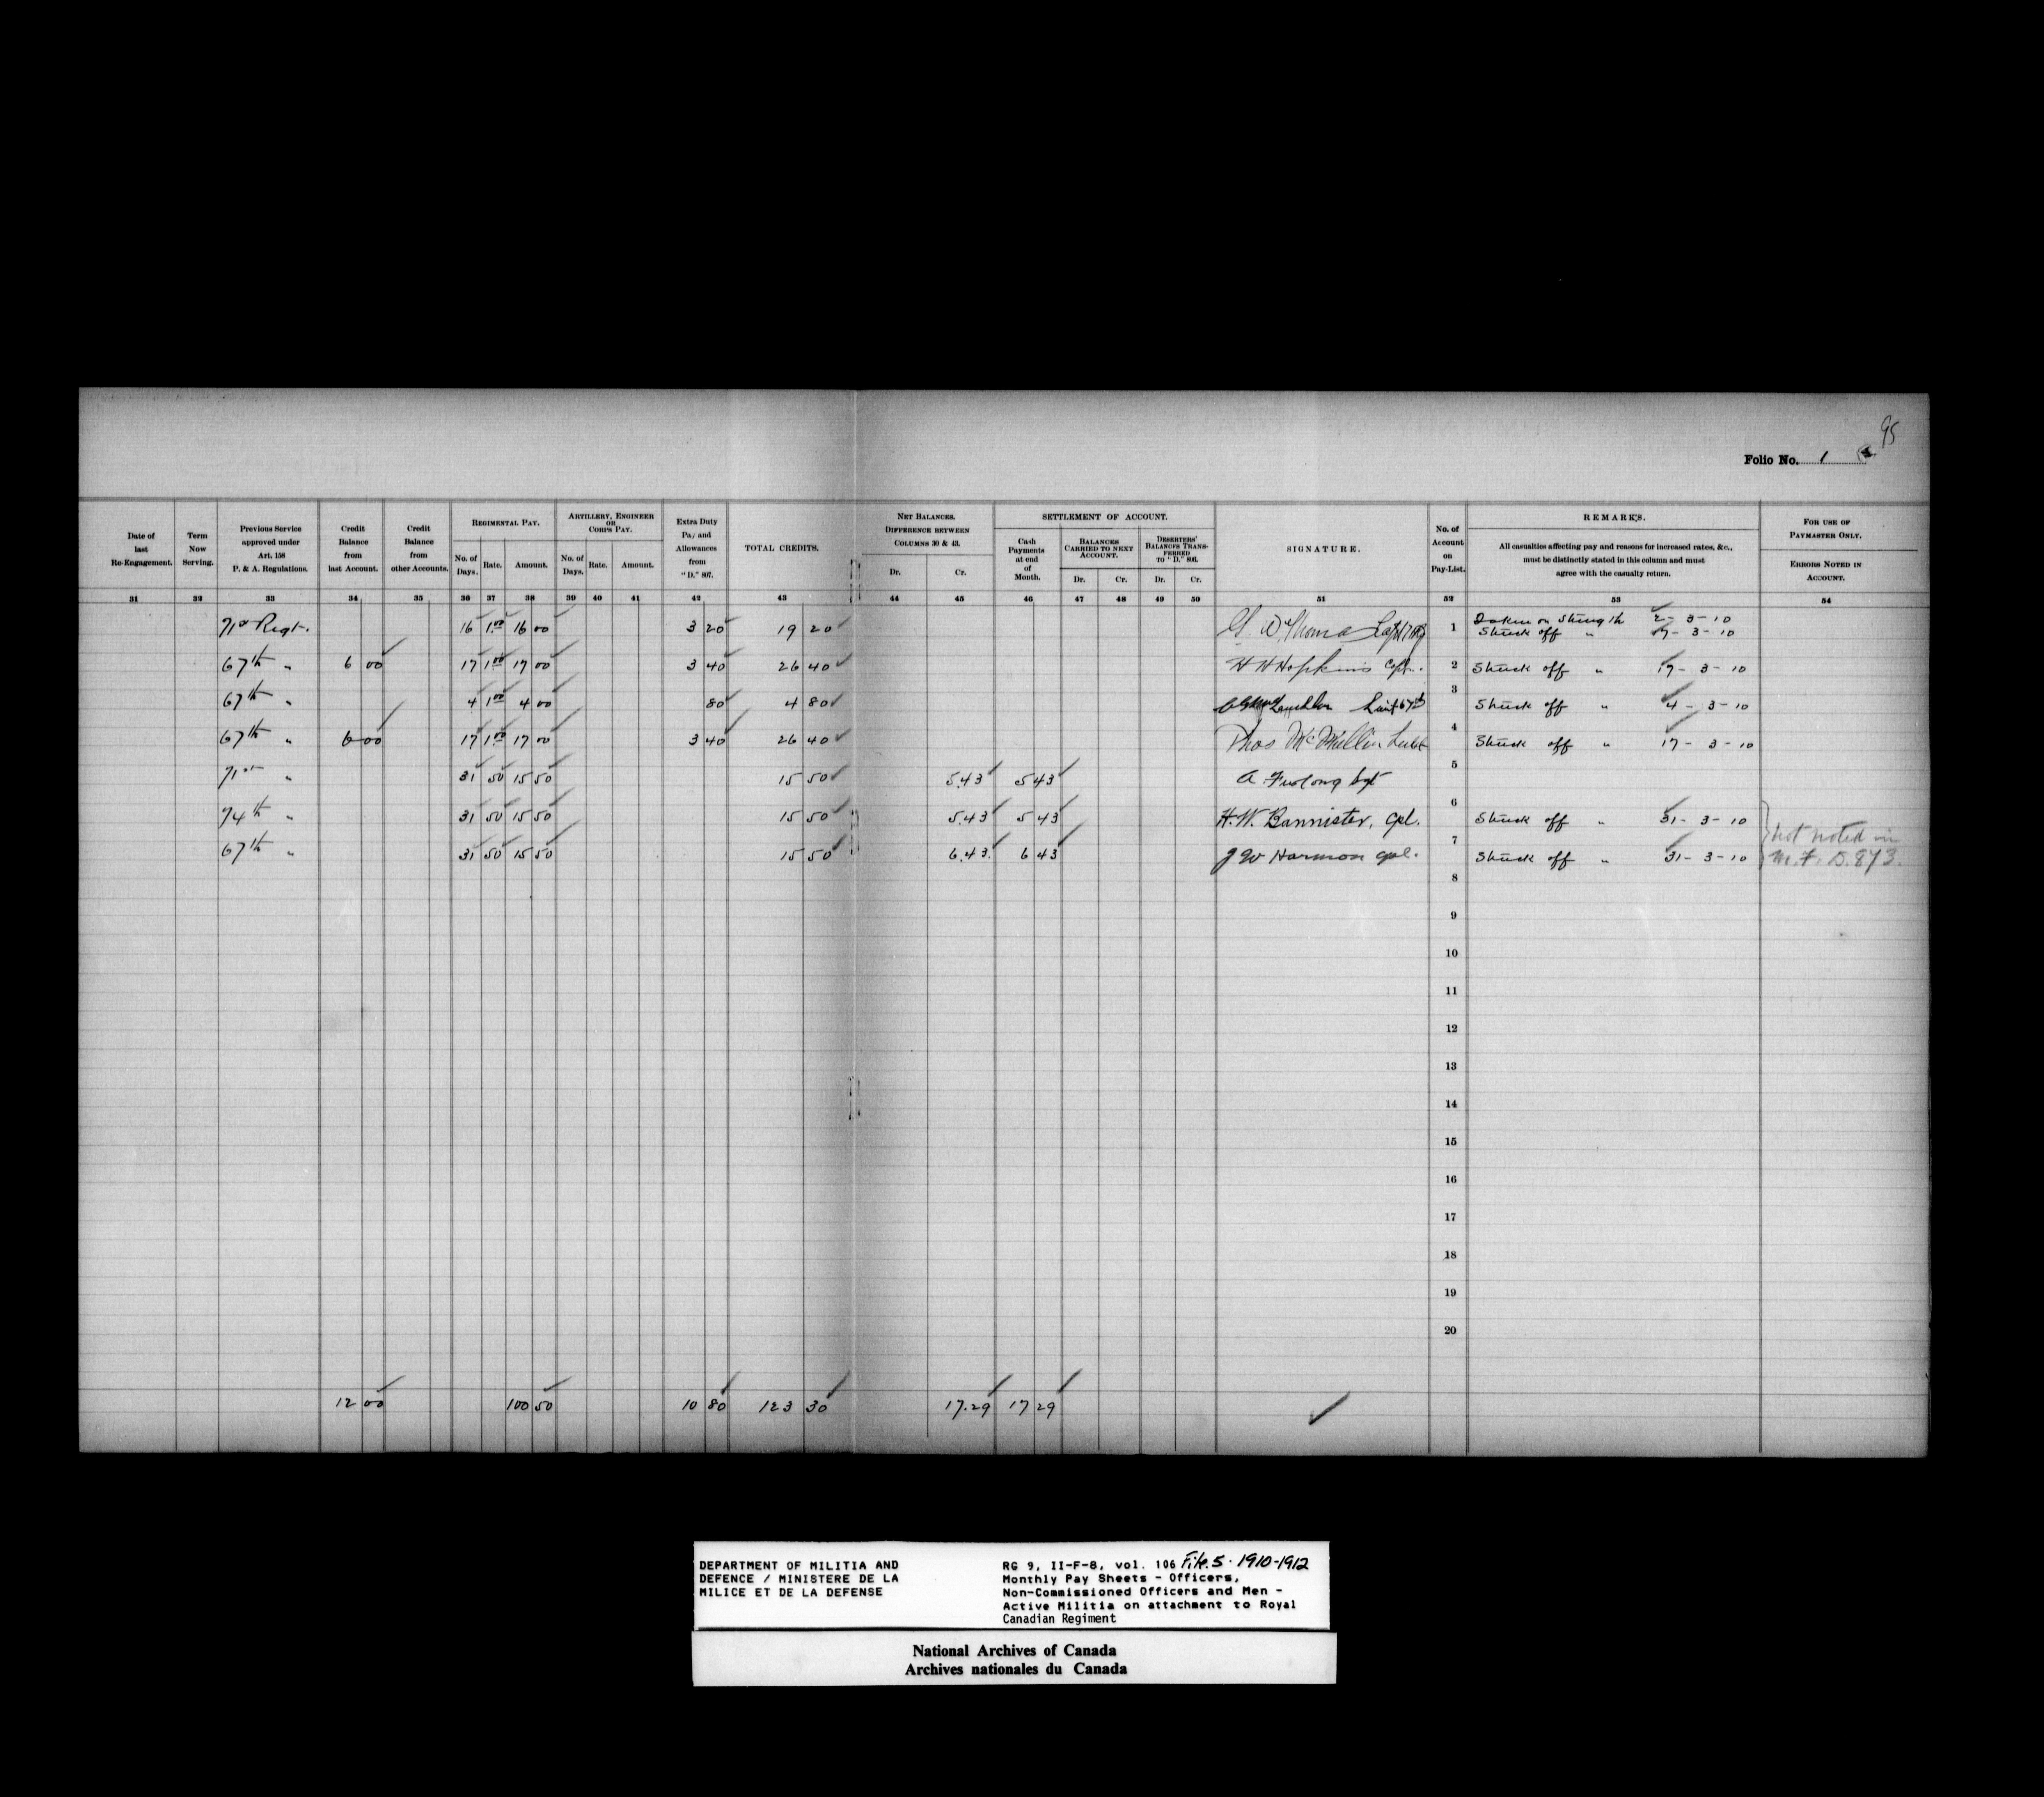 95
Folio No. 1
Date of last Re-Engagement.
Term Now Serving.
Previous Service approved under Art. 158 P. & A. Regulations.
Credit Balance from last Account.
Credit Balance from other Accounts.
REGIMENTAL PAY.
No. of Days. Rate. Amount.
ARTILLERY, ENGINEER OR CORPS PAY.
No. of Days. Rate. Amount.
Extra Duty Pay and Allowances from "D." 807.
TOTAL CREDITS.
NET BALANCES. DIFFERENCE BETWEEN COLUMNS 30 & 43.
Dr. Cr.
SETTLEMENT OF ACCOUNT.
Cash Payments at end of Month.
BALANCES CARRIED TO NEXT ACCOUNT.
Dr. Cr.
DESERTERS' BALANCES TRANSFERRED TO "D." 806.
Dr. Cr.
SIGNATURE.
No. of Account on Pay-List.
REMARKS.
All casualties affecting pay and reasons for increased rates, &c., must be distinctly stated in this column and must agree with the casualty return.
FOR USE OF PAYMASTER ONLY.
ERRORS NOTED IN ACCOUNT.
31 32 33 34 35 36 37 38 39 40 41 42 43 44 45 46 47 48 49 50 51 52 53 54
71st Regt. 16 1.00 16 00 3 20 19 20 1 Taken on Strength 2-3-10
Struck off " 17-3-10
67th " 6 00 17 1.00 17 00 3 40 26 40 H H Hopkins Capt. 2 Struck off " 17-3-10
67th " 4 1.00 4 00 80 4 80 Lieut 67th 3 Struck off " 4-3-10
67th " 6 00 17 1.00 17 00 3 40 26 40 Thos McMullin Lieut 4 Struck off " 17-3-10
71st " 31 50 15 50 15 50 5.43 5 43 A. Furlong Sgt 5
74th " 31 50 15 50 15 50 5.43 5 43 H. W. Bannister, Cpl. 6 Struck off " 31-3-10
67th " 31 50 15 50 15 50 6.43 6 43 J W Harmon Cpl. 7 Struck off " 31-3-10
not noted in
M.F. D.873.
8
9
10
11
12
13
14
15
16
17
18
19
20
12 00 100 50 10 80 123 30 17.29 17 29
DEPARTMENT OF MILITIA AND
DEFENCE / MINISTERE DE LA
MILICE ET DE LA DEFENSE
RG 9, II-F-8, vol. 106 File. 5 · 1910-1912
Monthly Pay Sheets - Officers,
Non-Commissioned Officers and Men -
Active Militia on attachment to Royal
Canadian Regiment
National Archives of Canada
Archives nationales du Canada